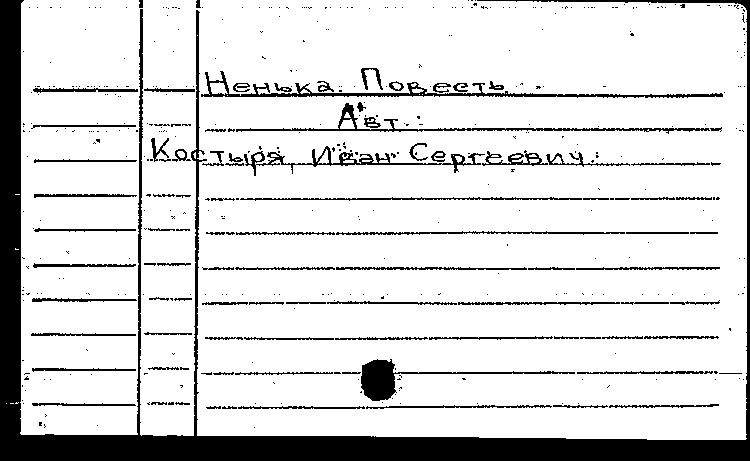 Ненька. Повесть
Авт.:
Костыря, Иван Сергеевич.